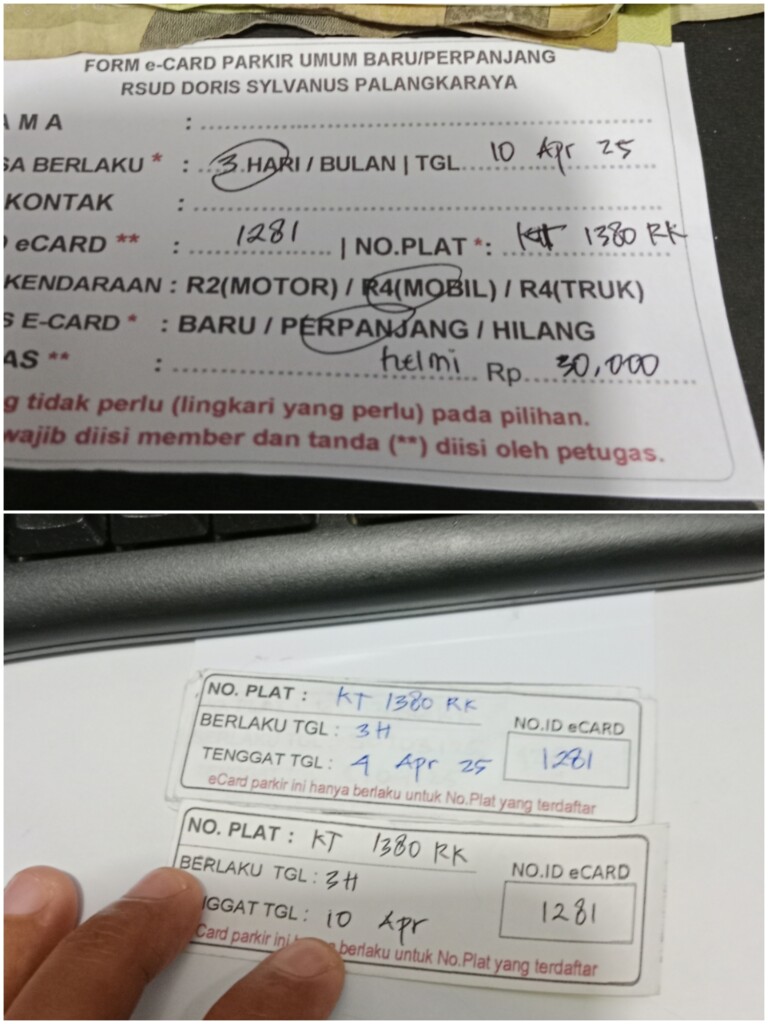 FORM e-CARD PARKIR UMUM BARU/PERPANJANG
RSUD DORIS SYLVANUS PALANGKARAYA
AMA : ....................
SA BERLAKU * : ...3.HARI / BULAN | TGL. 10 Apr 25
KONTAK : ....................
eCARD ** : 1281 | NO.PLAT *: KT 1380 RK
KENDARAAN : R2(MOTOR) / R4(MOBIL) / R4(TRUK)
S E-CARD * : BARU / PERPANJANG / HILANG
AS ** : helmi Rp. 30,000
g tidak perlu (lingkari yang perlu) pada pilihan.
wajib diisi member dan tanda (**) diisi oleh petugas.
NO. PLAT : KT 1380 RK
BERLAKU TGL : 3H
NO.ID eCARD
TENGGAT TGL : 4 Apr 25
1281
eCard parkir ini hanya berlaku untuk No.Plat yang terdaftar
NO. PLAT : KT 1380 RK
BERLAKU TGL : 3H
NO.ID eCARD
NGGAT TGL : 10 Apr
1281
Card parkir ini berlaku untuk No.Plat yang terdaftar